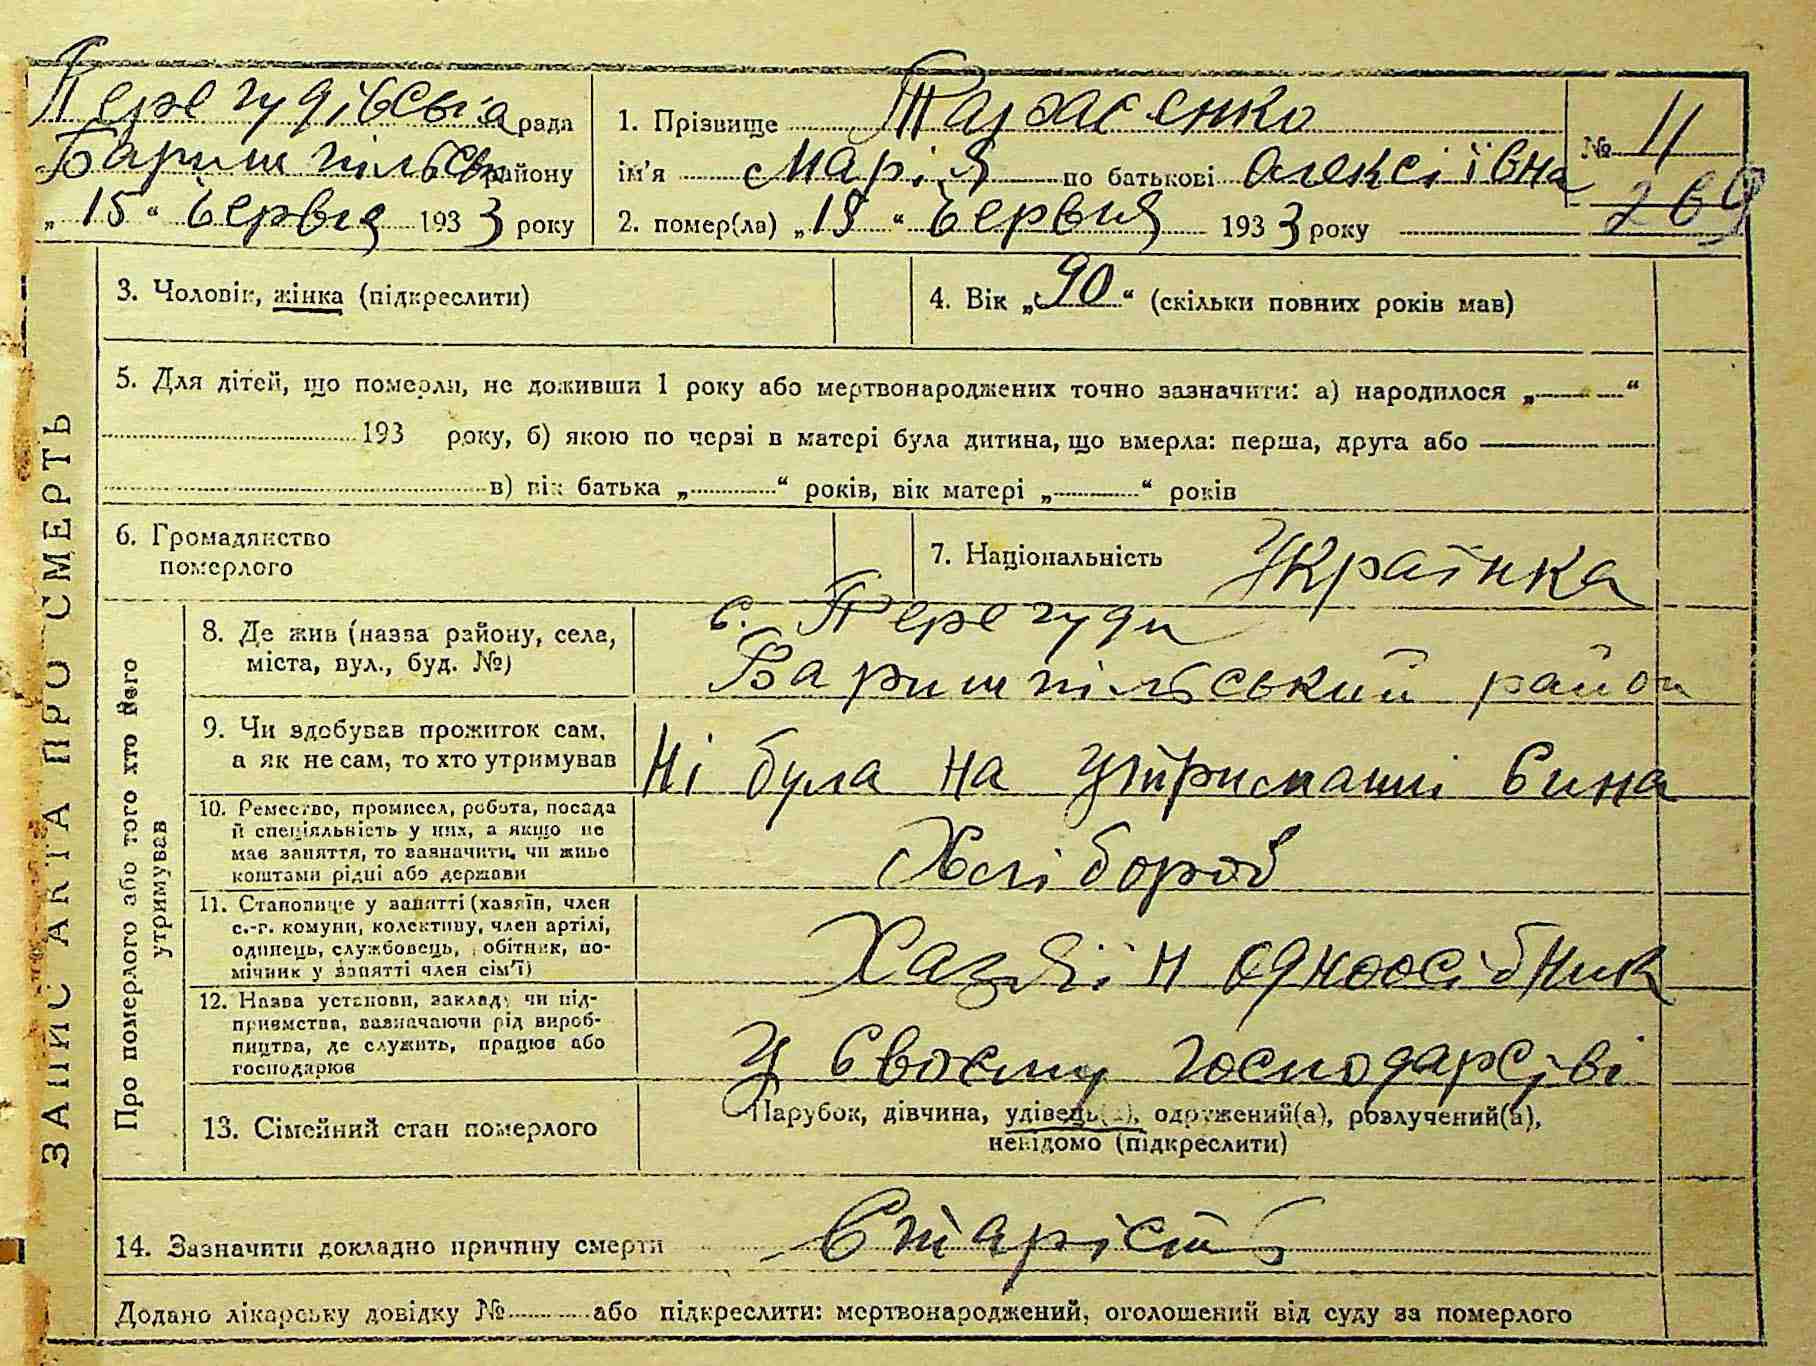 Перегудівська рада
Баришпільськ району
„ 15 “ Червня 1933 року
1. Прізвище Тарасенко
ім'я Марія по батькові Олексіївна
2. помер(ла) „ 15 “ Червня 1933 року
№ 11
269
3. Чоловік, жінка (підкреслити)
4. Вік „ 90 “ (скільки повних років мав)
5. Для дітей, що померли, не доживши 1 року або мертвонароджених точно зазначити: а) народилося „ “
193 року, б) якою по черзі в матері була дитина, що вмерла: перша, друга або
в) вік батька „ “ років, вік матері „ “ років
6. Громадянство
померлого
7. Національність Українка
ЗАПИС АКТА ПРО СМЕРТЬ
Про померлого або того хто його
утримував
8. Де жив (назва району, села,
міста, вул., буд. №)
с. Перегуди
Баришпільський район
9. Чи здобував прожиток сам,
а як не сам, то хто утримував
Ні була на утриманні сина
10. Ремество, промисел, робота, посада
й спеціяльність у них, а якщо не
має заняття, то зазначити, чи живе
коштами рідні або держави
Хлібороб
11. Становище у занятті (хазяїн, член
с.-г. комуни, колективу, член артілі,
одинець, службовець, робітник, по-
мічник у занятті член сім'ї)
Хазяїн одноосібник
12. Назва установи, закладу чи під-
приємства, зазначаючи рід вироб-
ництва, де служить, працює або
господарює
У своєму господарстві
13. Сімейний стан померлого
Парубок, дівчина, удівець(а), одружений(а), розлучений(а),
невідомо (підкреслити)
14. Зазначити докладно причину смерти Старість
Додано лікарську довідку № або підкреслити: мертвонароджений, оголошений від суду за померлого